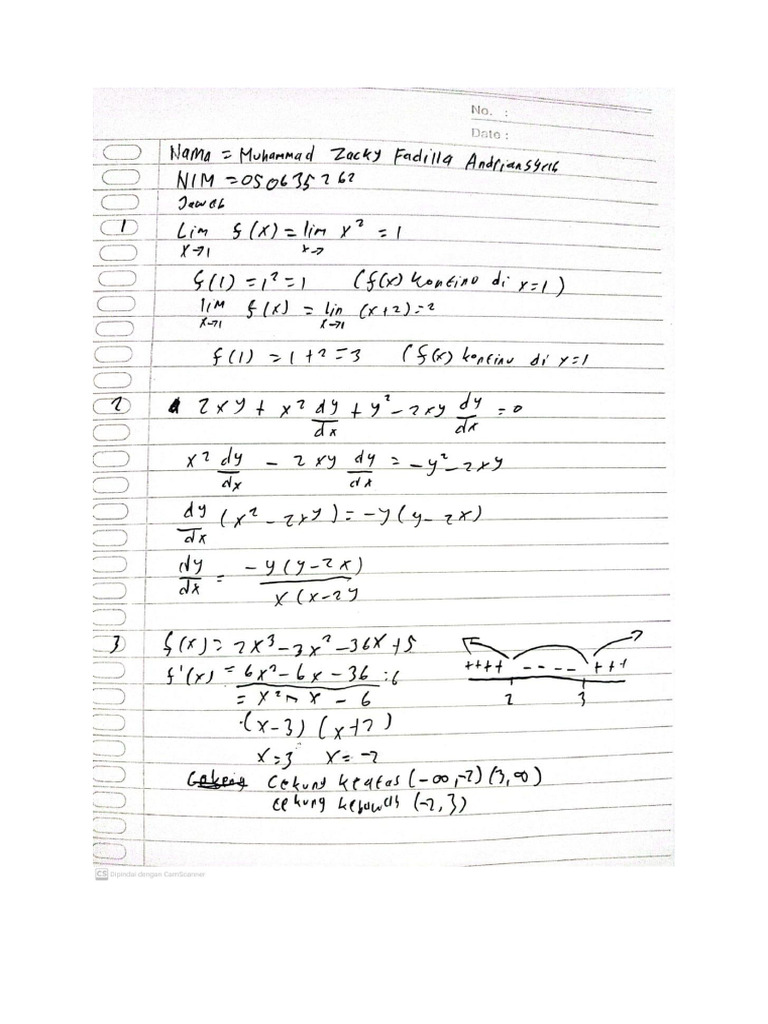 No. :
Date :
Nama = Muhammad Zacky Fadilla Andriansyah
NIM = 050635262
Jawab
1 Lim f(x) = lim x² = 1
x→1 x→
f(1) = 1² = 1 (f(x) kontinu di x=1)
lim f(x) = lim (x+2) = 2
x→1 x→1
f(1) = 1+2 = 3 (f(x) kontinu di x=1
2 2xy + x² dy/dx + y² - 2xy dy/dx = 0
x² dy/dx - 2xy dy/dx = -y² - 2xy
dy/dx (x² - 2xy) = -y(y-2x)
dy/dx = -y(y-2x) / x(x-2y
3 f(x) = 2x³ - 3x² - 36x + 5
f'(x) = 6x² - 6x - 36 :6
= x² - x - 6
(x-3) (x+2)
x=3 x=-2
++++ ---- +++
2 3
Cekung keatas (-∞,-2) (3,∞)
cekung kebawah (-2,3)
CS Dipindai dengan CamScanner